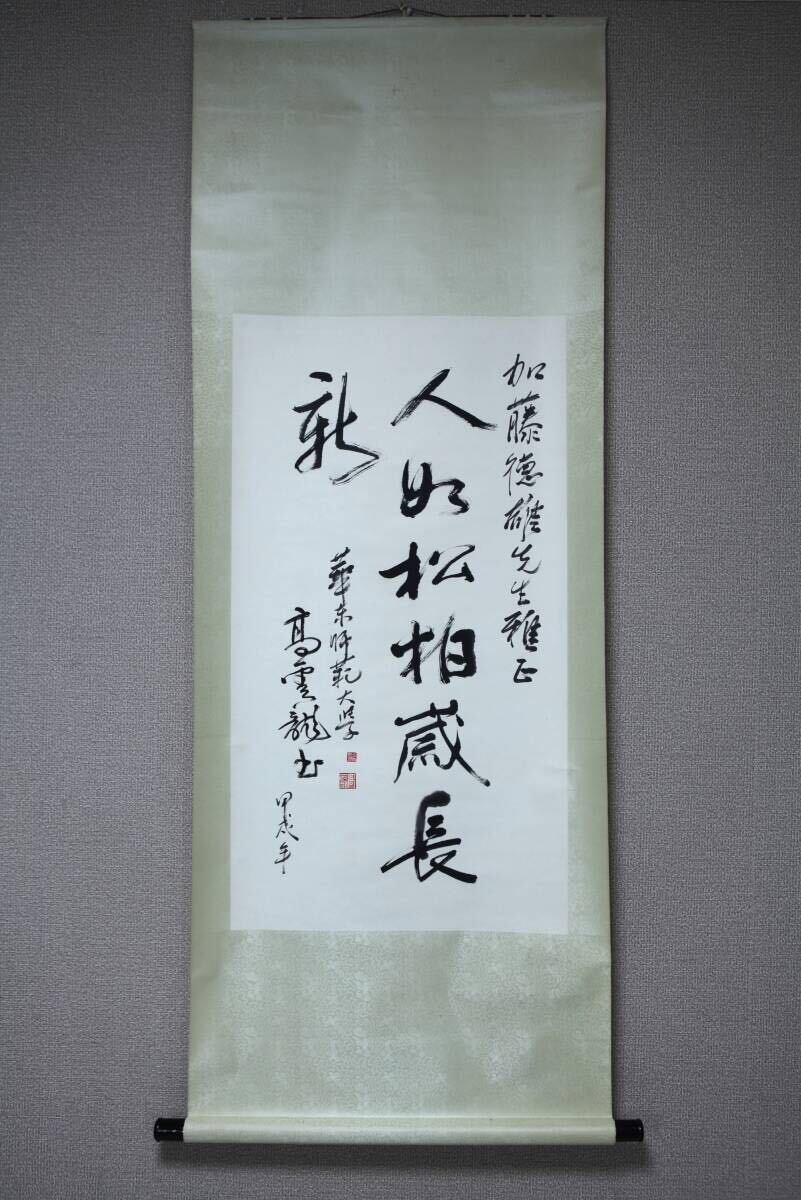 加藤德雄先生雅正
人如松柏歲長
新
華东师範大学
高雲龍书
甲戌年